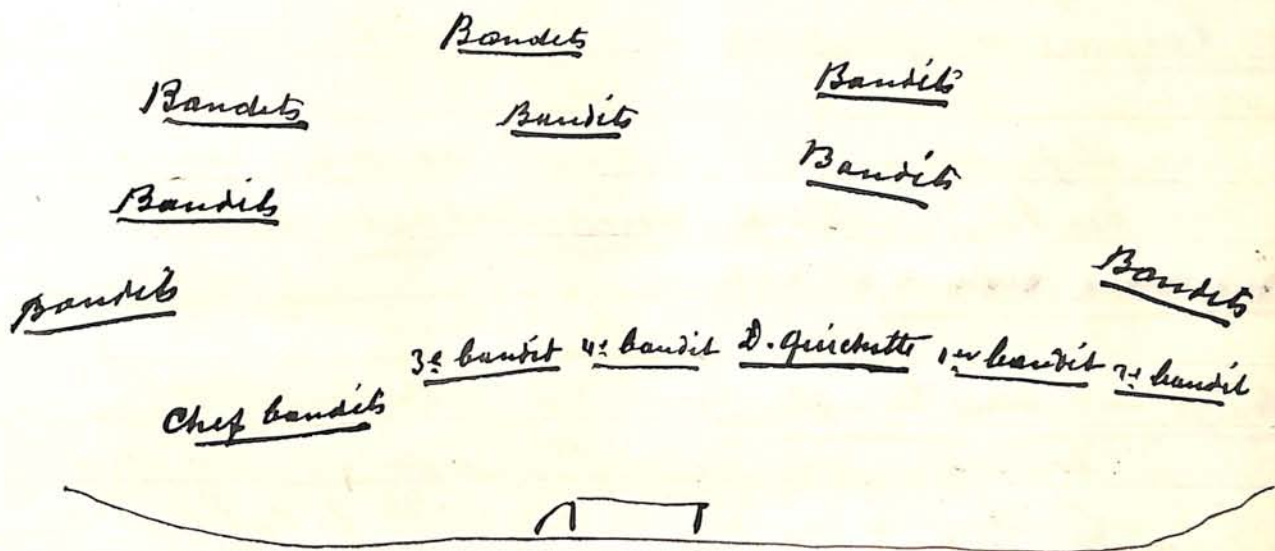 Bandits
Bandits
Bandits
Bandits
Bandits
Bandits
Bandits
Bandits
3e bandit 4e bandit D. Quichotte 1er bandit 2e bandit
Chef bandits